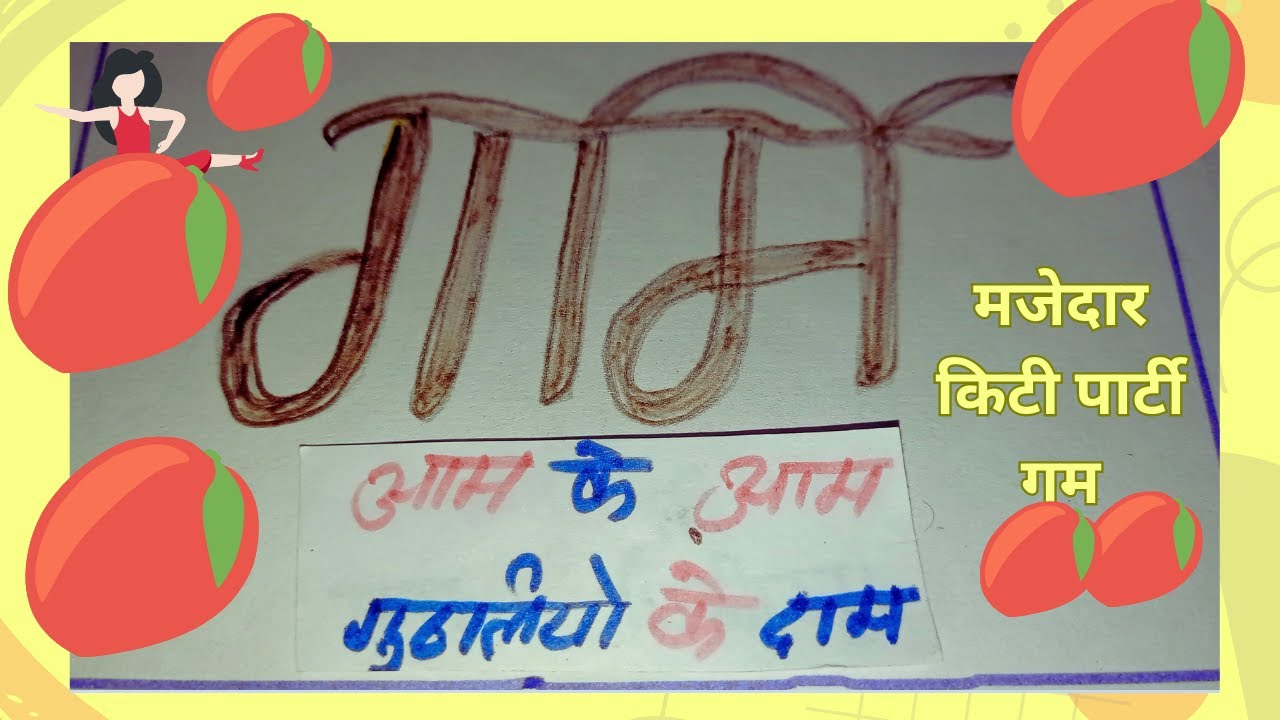 गर्मि
मजेदार
किटी पार्टी
गम
आम के आम
गुठलियो के दाम